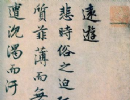 遠遊
悲時俗之迫
質菲薄而無
遭沈濁而汙